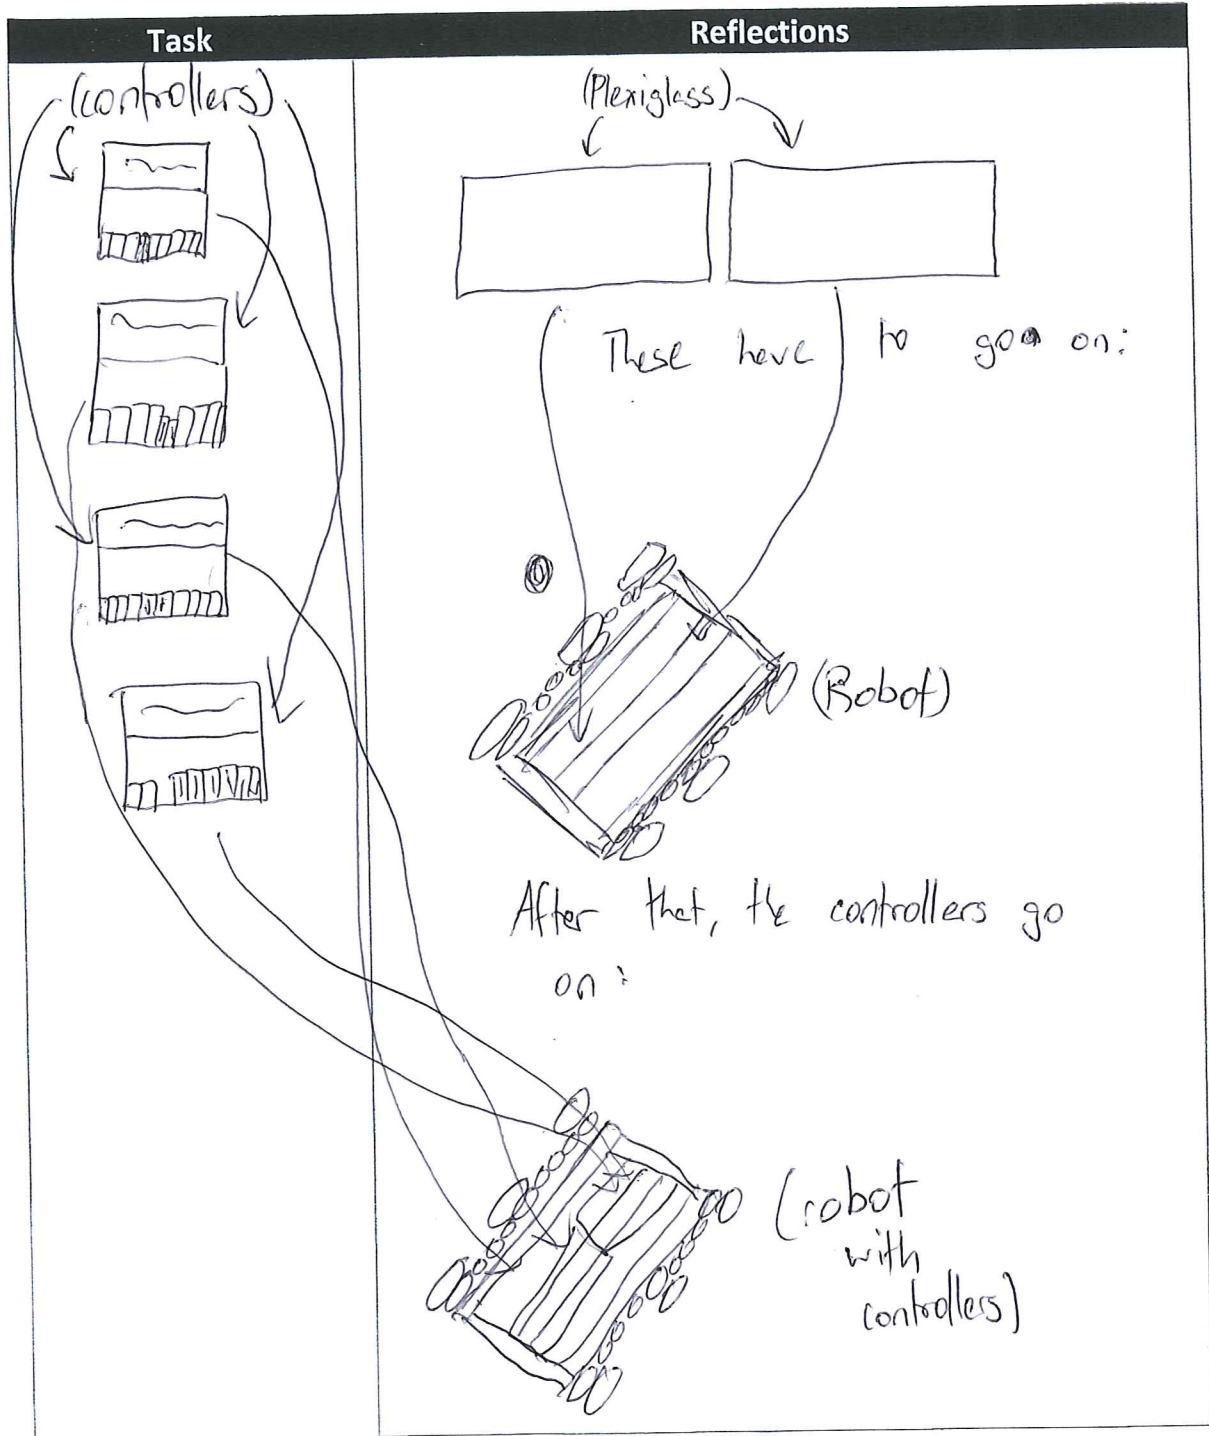 Task
Reflections
(controllers)
(Plexiglass)
These have to go on:
(Robot)
After that, the controllers go
on:
(robot
with
controllers)